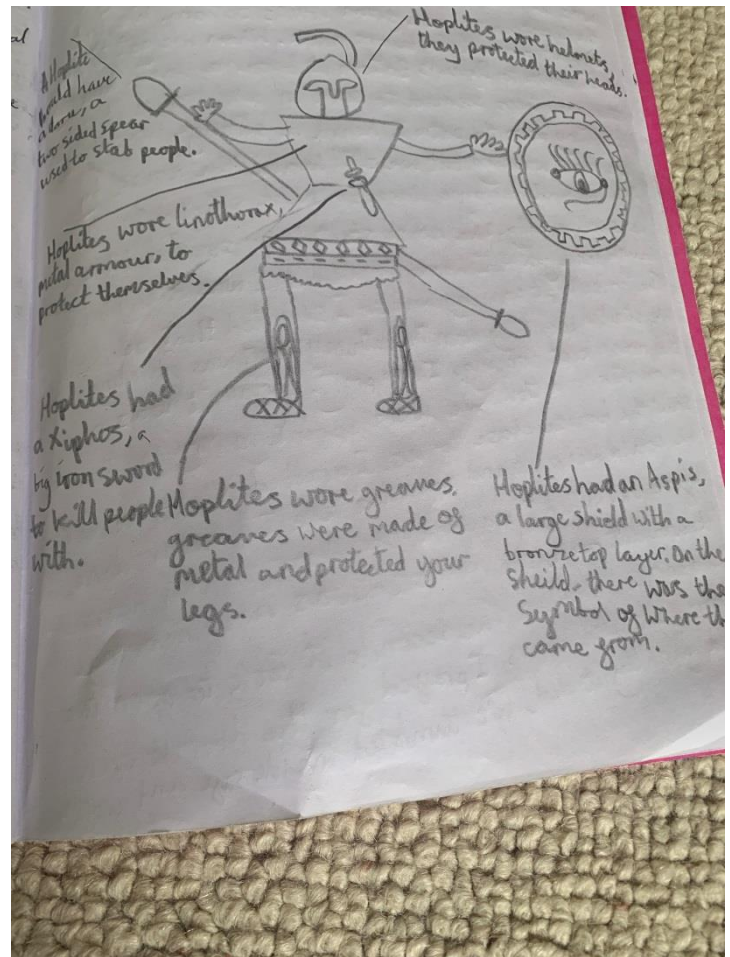 al
Hoplites wore helmets,
they protected their heads.
A Hoplite
would have
a doru, a
two sided spear
used to stab people.
Hoplites wore linothorax,
metal armour, to
protect themselves.
Hoplites had
a xiphos, a
big iron sword
to kill people
with.
Hoplites wore greaves.
greaves were made of
metal and protected your
legs.
Hoplites had an Aspis,
a large shield with a
bronze top layer. On the
sheild, there was the
symbol of where th
came from.